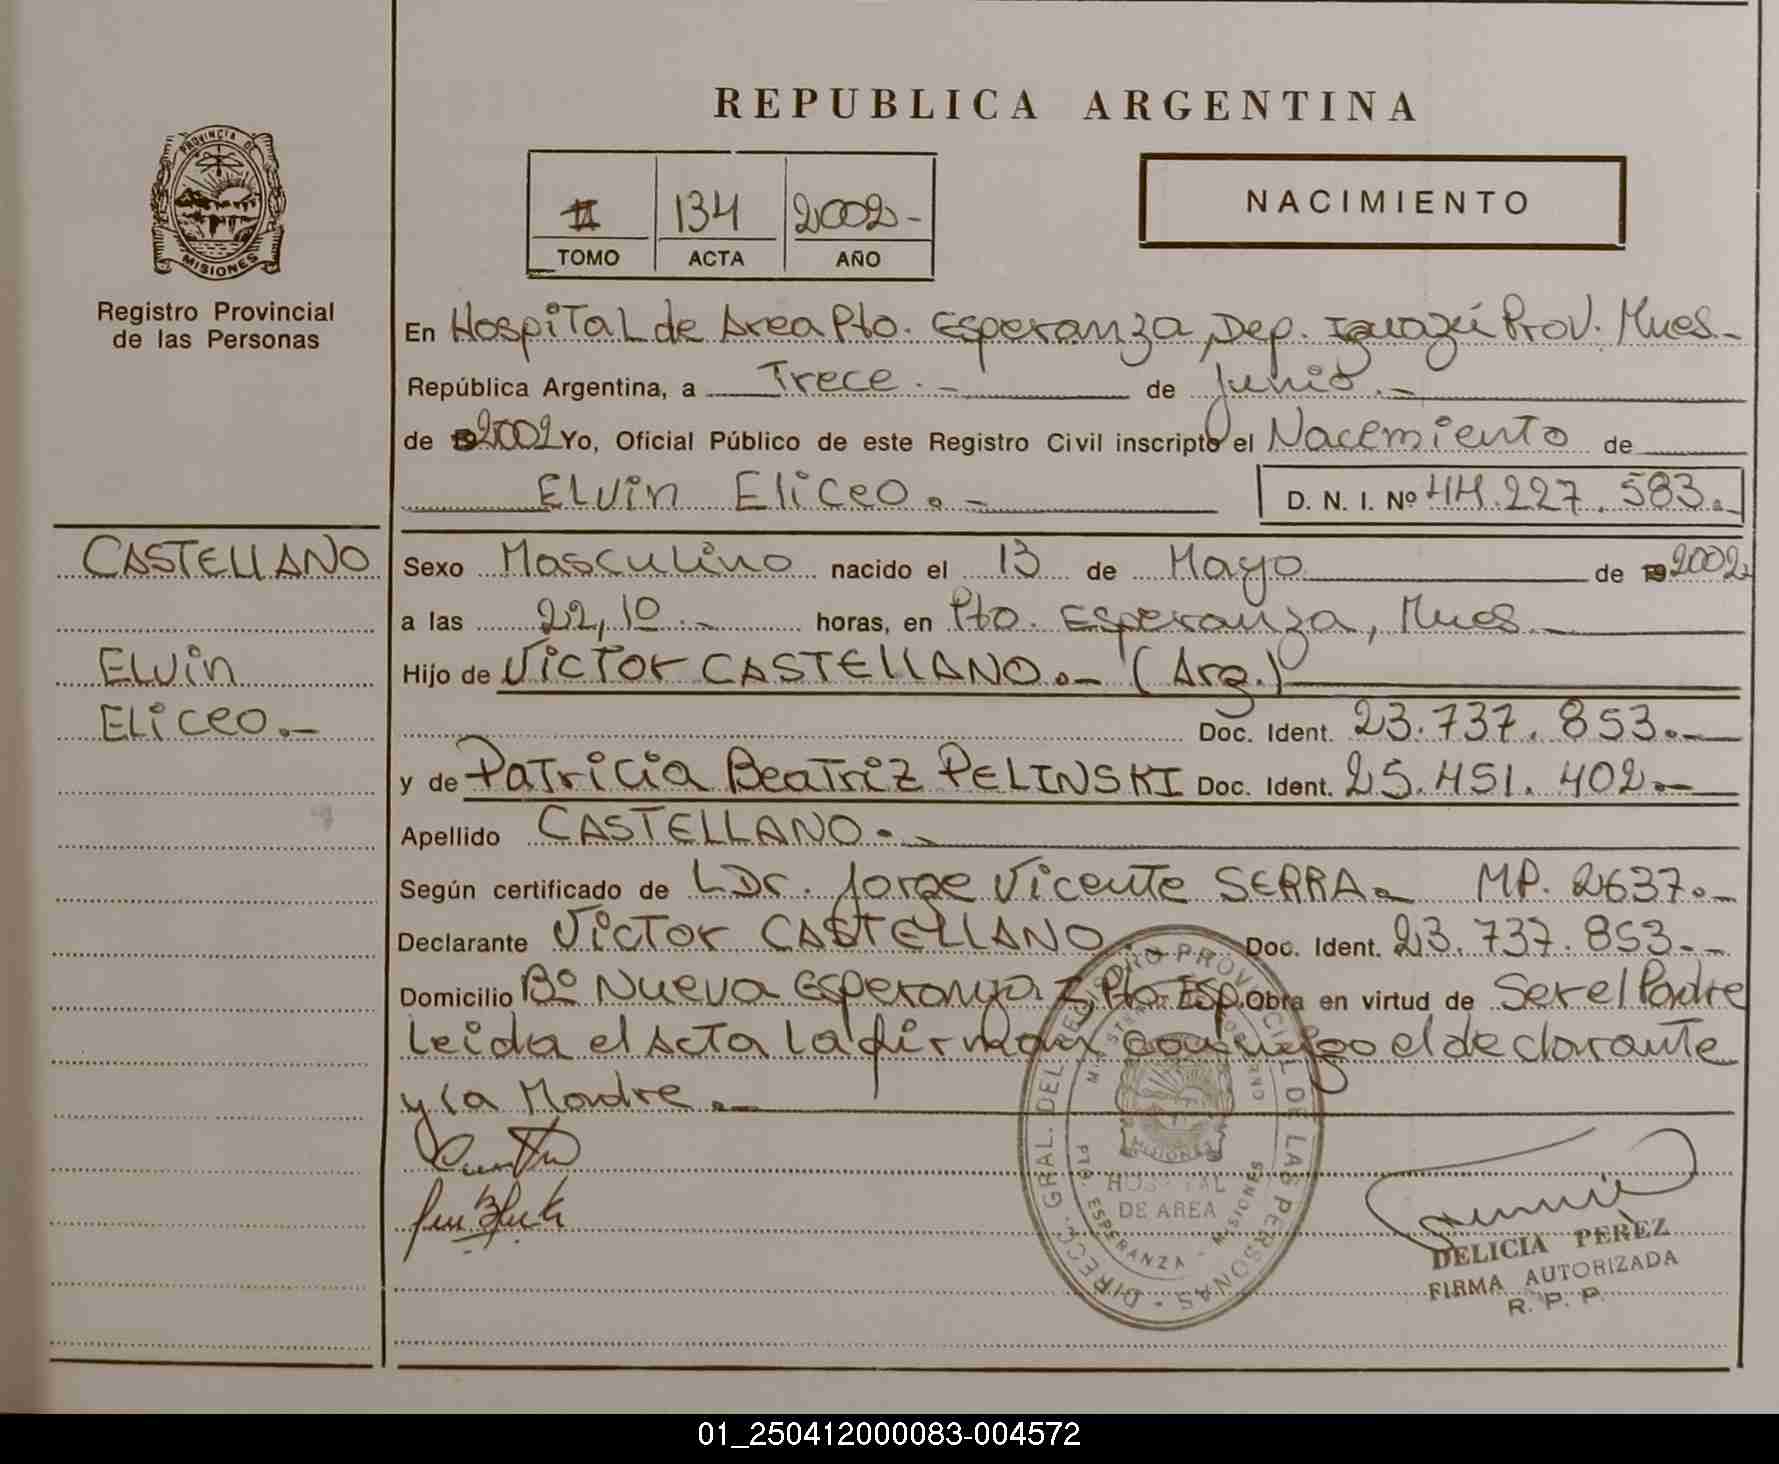 REPUBLICA ARGENTINA
PROVINCIA DE MISIONES
Registro Provincial
de las Personas
II 134 2002-
TOMO ACTA AÑO
NACIMIENTO
En Hospital de Area Pto. Esperanza, Dep. Iguazú Prov. Mnes.-
República Argentina, a Trece.- de junio.-
de 2002 Yo, Oficial Público de este Registro Civil inscripto el Nacemiento de
Elvin Eliceo.- D. N. I. Nº 44.227.583.-
CASTELLANO
Elvin
Eliceo.-
Sexo Masculino nacido el 13 de Mayo de 2002
a las 22,10.- horas, en Pto. Esperanza, Mnes.-
Hijo de Victor CASTELLANO.- (Arg.)
Doc. Ident. 23.737.853.-
y de Patricia Beatriz PELINSKI Doc. Ident. 25.451.402.-
Apellido CASTELLANO.-
Según certificado de L Dr. Jorge Vicente SERRA.- MP. 2637.-
Declarante Victor CASTELLANO Doc. Ident. 23.737.853.-
Domicilio Bº Nueva Esperanza Pto. Esp. Obra en virtud de Ser el Padre
Leida el Acta La firman conmigo el declarante
y la Madre.-
DIRECC. GRAL. DEL REGISTRO PROVINCIAL DE LAS PERSONAS
HOSPITAL
DE AREA
PTO. ESPERANZA - MISIONES
DELICIA PEREZ
FIRMA AUTORIZADA
R. P. P.
01_250412000083-004572